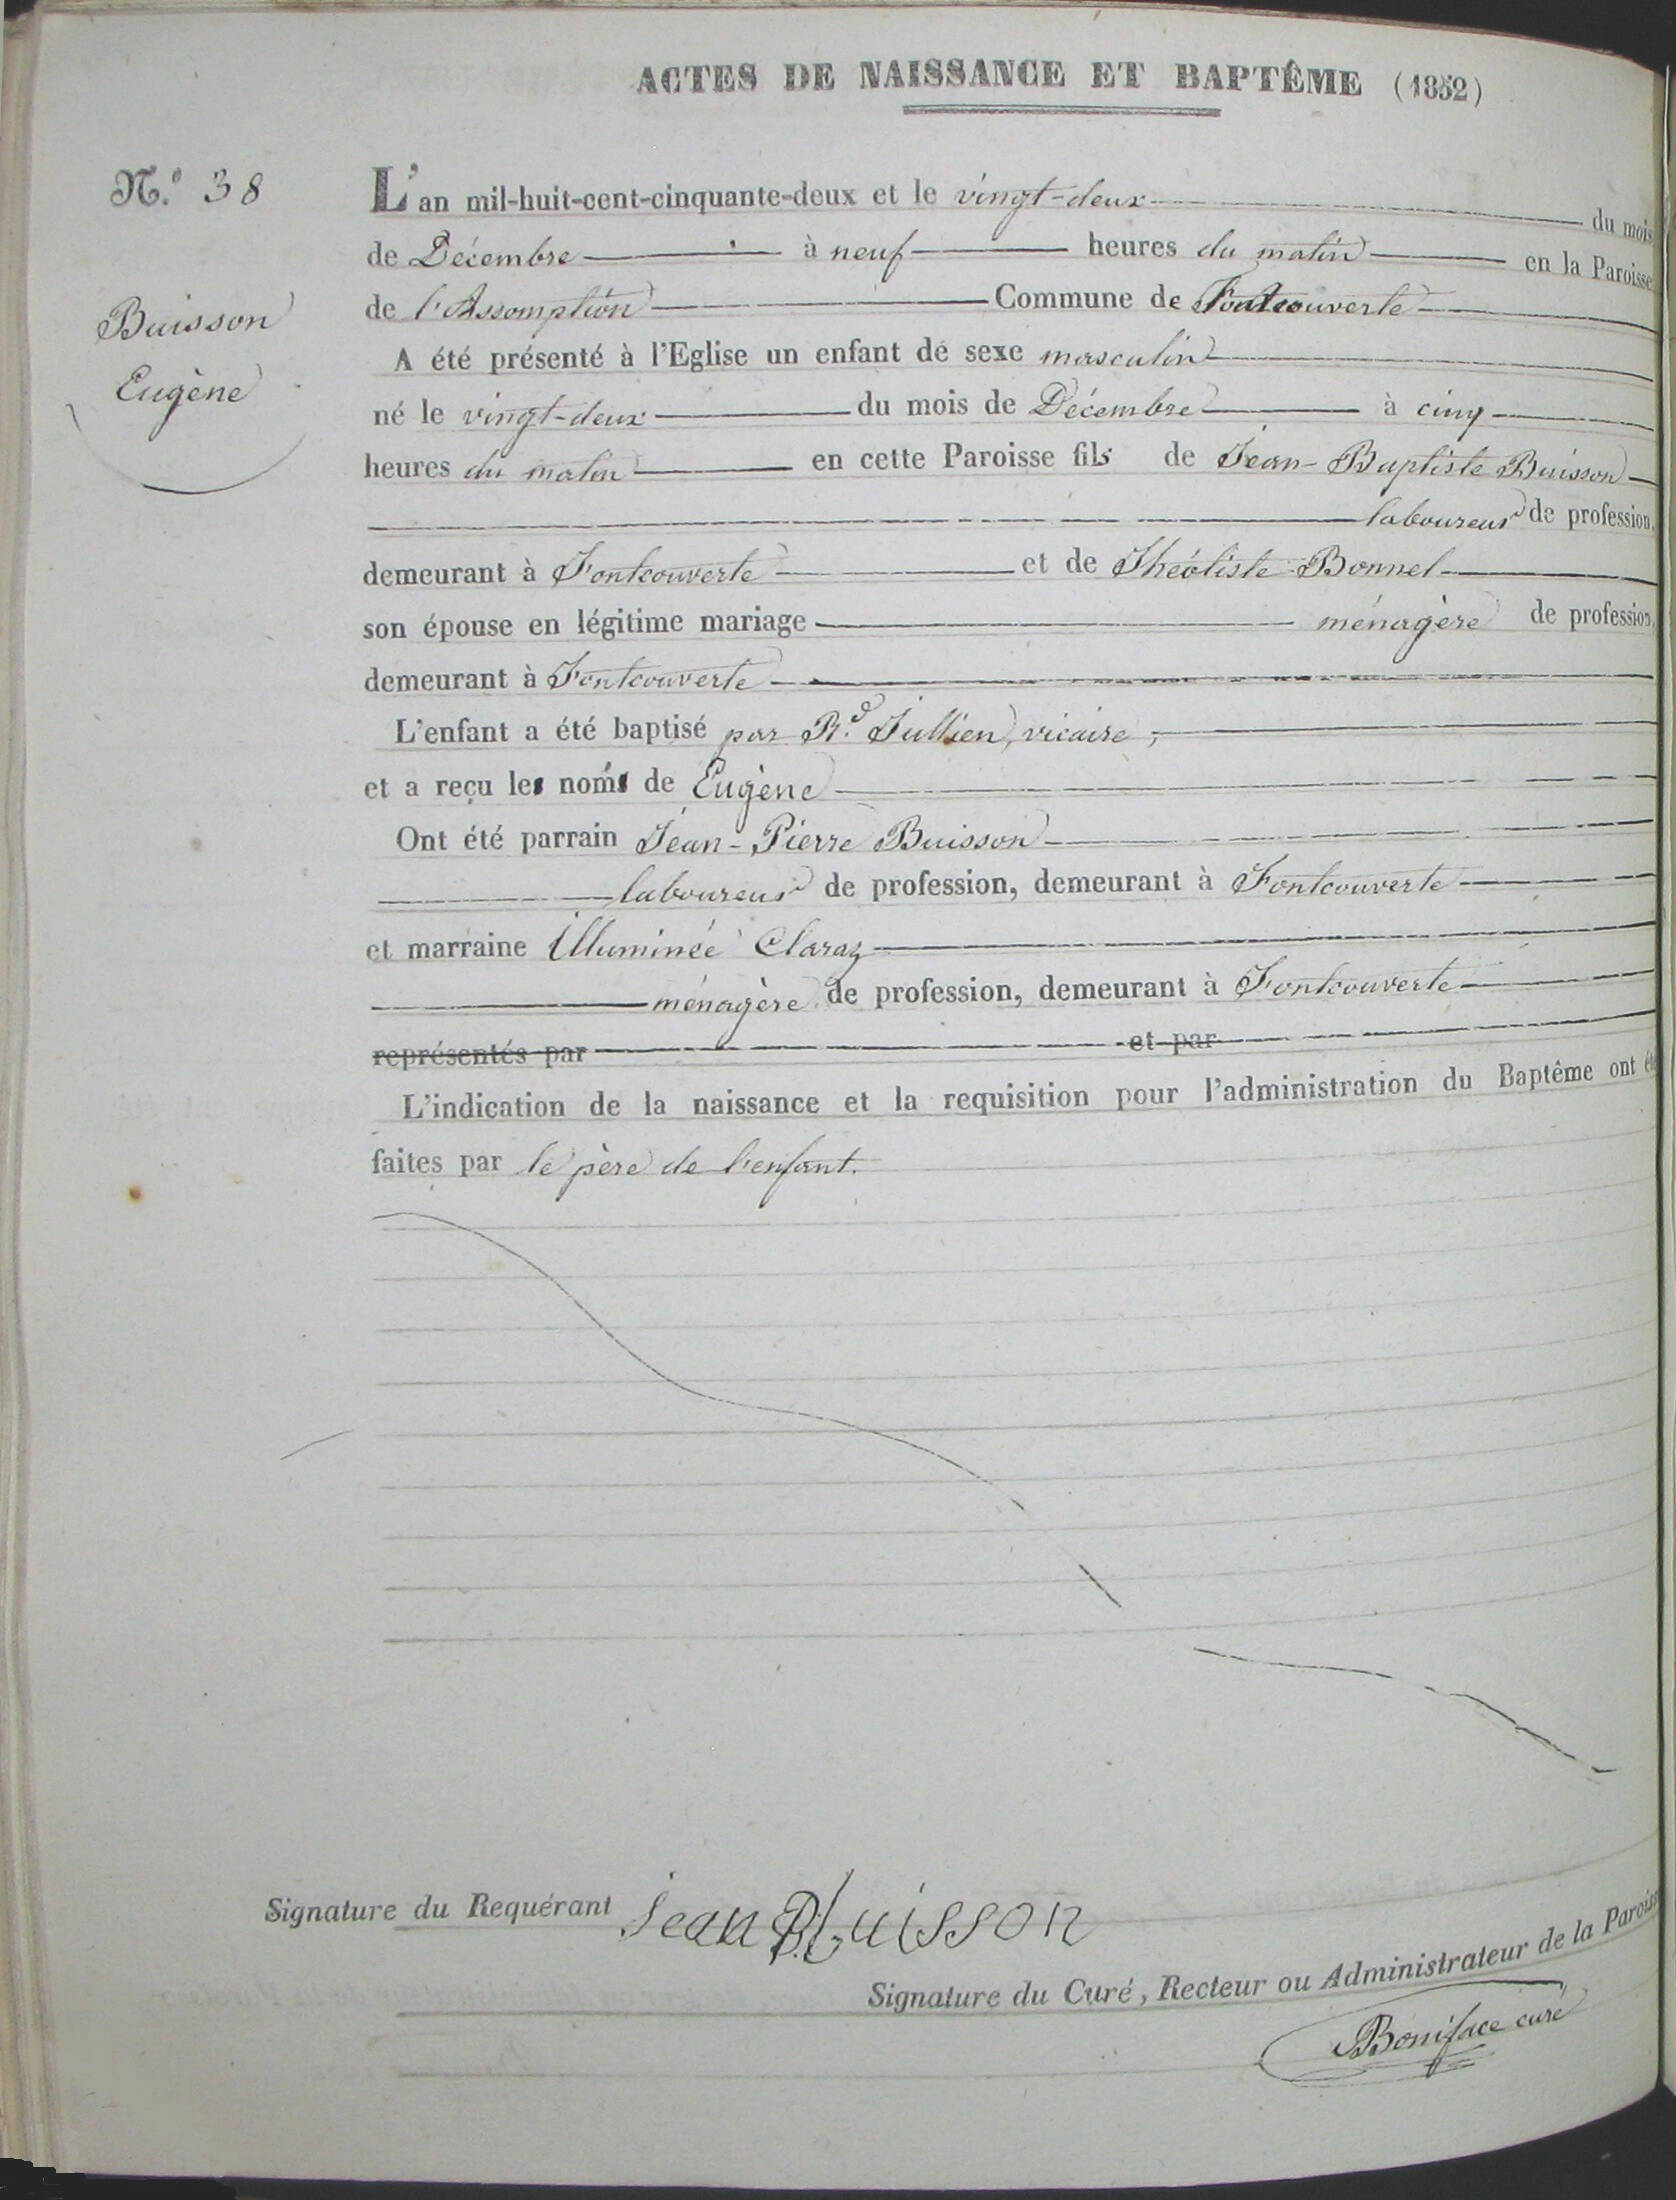 ACTES DE NAISSANCE ET BAPTÊME (1852)
N.o 38
Buisson
Eugène
L'an mil-huit-cent-cinquante-deux et le vingt-deux du mois
de Décembre à neuf heures du matin en la Paroisse
de l'Assomption Commune de Fontcouverte
A été présenté à l'Eglise un enfant de sexe masculin
né le vingt-deux du mois de Décembre à cinq
heures du matin en cette Paroisse fils de Jean-Baptiste Buisson
laboureur de profession,
demeurant à Fontcouverte et de Théotiste Bonnel
son épouse en légitime mariage ménagère de profession,
demeurant à Fontcouverte
L'enfant a été baptisé par R.d Jullien, vicaire,
et a reçu les noms de Eugène
Ont été parrain Jean-Pierre Buisson
laboureur de profession, demeurant à Fontcouverte
et marraine Illuminée Claraz
ménagère de profession, demeurant à Fontcouverte
représentés par et par
L'indication de la naissance et la requisition pour l'administration du Baptême ont été
faites par le père de l'enfant.
Signature du Requérant jean B Buisson
Signature du Curé, Recteur ou Administrateur de la Paroisse
Boniface curé